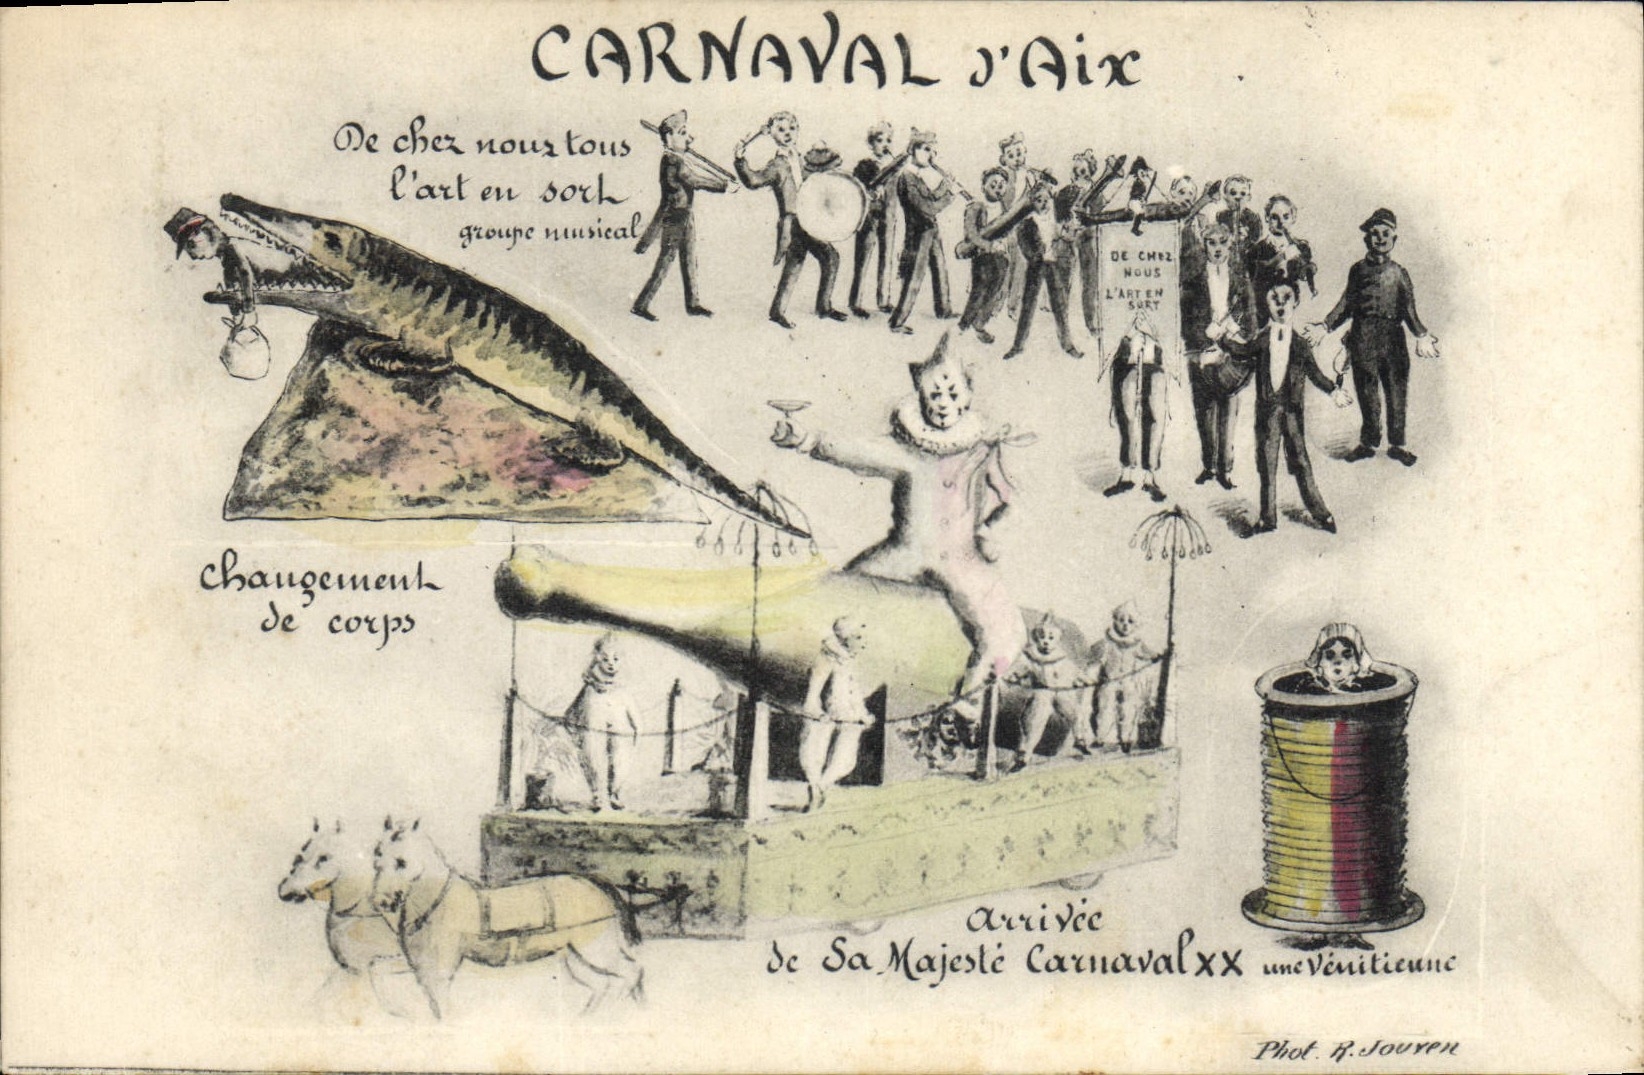 CARNAVAL d'Aix
De chez nous tous
l'art en sort
groupe musical
DE CHEZ
NOUS
L'ART EN
SORT
changement
de corps
arrivée
de Sa Majesté Carnaval XX
une Vénitienne
Phot. R. Jouven